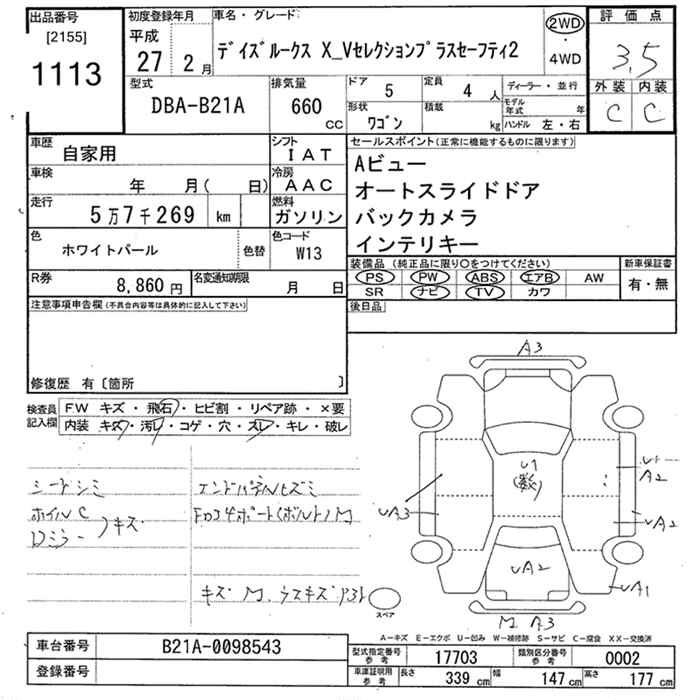 出品番号
[2155]
1113
初度登録年月
平成
27 2 月
車名・グレード
デイズルークス X_Vセレクションプラスセーフティ2
2WD
・
4WD
評価点
3.5
外装 内装
C C
型式
DBA-B21A
排気量
660
CC
ドア
5
定員
4 人
形状
ワゴン
積載
kg
ディーラー・並行
モデル年式 年
ハンドル 左・右
車歴
自家用
シフト
IAT
車検
年 月( 日)
冷房
AAC
走行
5万7千269 km
燃料
ガソリン
色
ホワイトパール
色替
色コード
W13
R券
8,860 円
名変通知期限
月 日
セールスポイント(正常に機能するものに限ります)
Aビュー
オートスライドドア
バックカメラ
インテリキー
装備品 (純正品に限り○をつけてください)
新車保証書
PS PW ABS エアB AW
SR ナビ TV カワ
有・無
後日品
注意事項申告欄(不具合内容等は具体的に記入して下さい)
修復歴 有〔箇所 〕
検査員
記入欄
FW キズ・飛石・ヒビ割・リペア跡・×要
内装 キズ・汚レ・コゲ・穴・スレ・キレ・破レ
シートシミ
ホイルC
Dミラー
キズ
エンドパネルヒズミ
キズ M
A3
U1
A2
UA3
UA2
UA2
UA1
M A3
スペア
A-キズ E-エクボ U-凹み W-補修跡 S-サビ C-腐食 XX-交換済
車台番号
B21A-0098543
登録番号
型式指定番号
参考
17703
類別区分番号
参考
0002
車庫証明用
参考
長さ 339 cm
幅 147 cm
高さ 177 cm